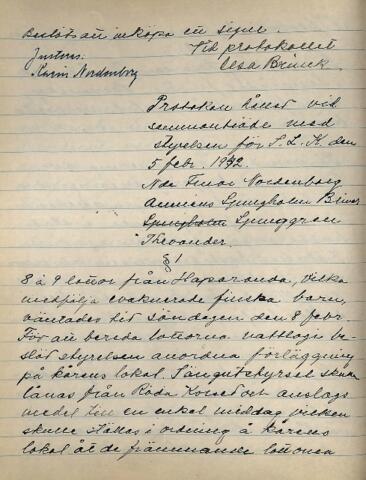 Beslöt att inköpa en signe.
Justeras. Vid protokollet
Karin Nordenborg Elsa Brinck.
Protokoll hållet vid
sammanträde med
styrelsen för S. L. K. den
5 febr. 1942.
Nda Fruar Nordenborg
Ljungholm Brinck
Ljungholm Ljunggren
Theander.
§ 1
8 à 9 lottor från Haparanda, vilka
medfölja evakuerade finska barn,
väntades hit söndagen den 8 febr.
För att bereda lottorna nattlogi be-
slöt styrelsen anordna förläggning
på kårens lokal. Sängutstyrsel skulle
lånas från Röda Korset och anslogs
medel till en enkel middag vilken
skulle ställas i ordning å kårens
lokal åt de främmande lottorna